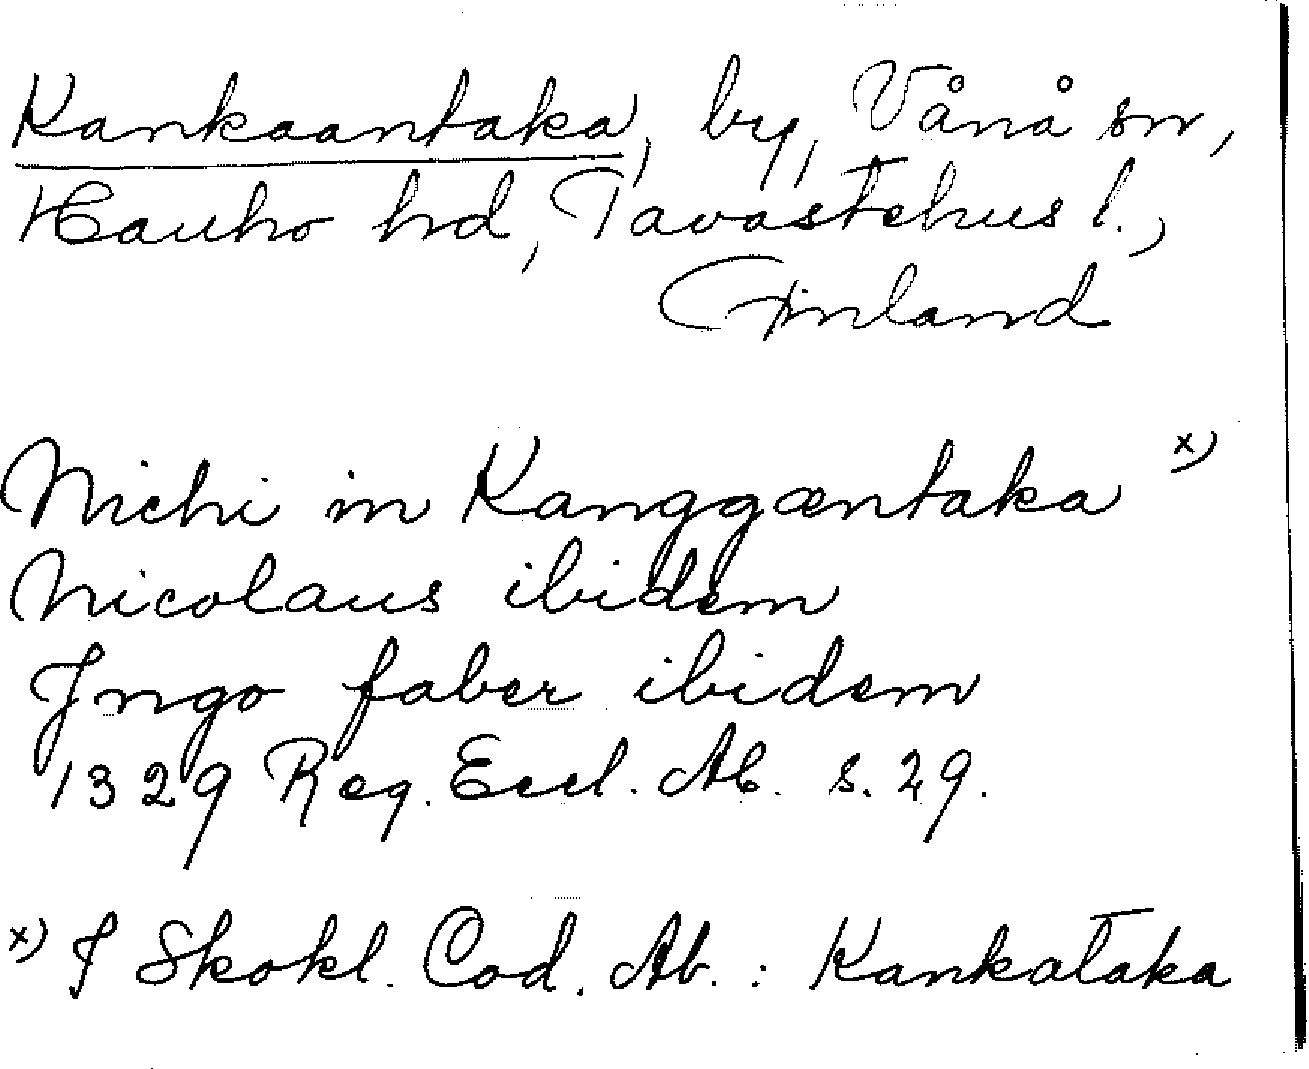 Kankaantaka, by, Vånå sn,
Hauho hd, Tavastehus l.,
Finland
Michi in Kanggæntaka x)
Nicolaus ibidem
Jngo faber ibidem
1329 Reg. Eccl. Ab. s. 29.
x) J Skokl. Cod. Ab. : Kankataka